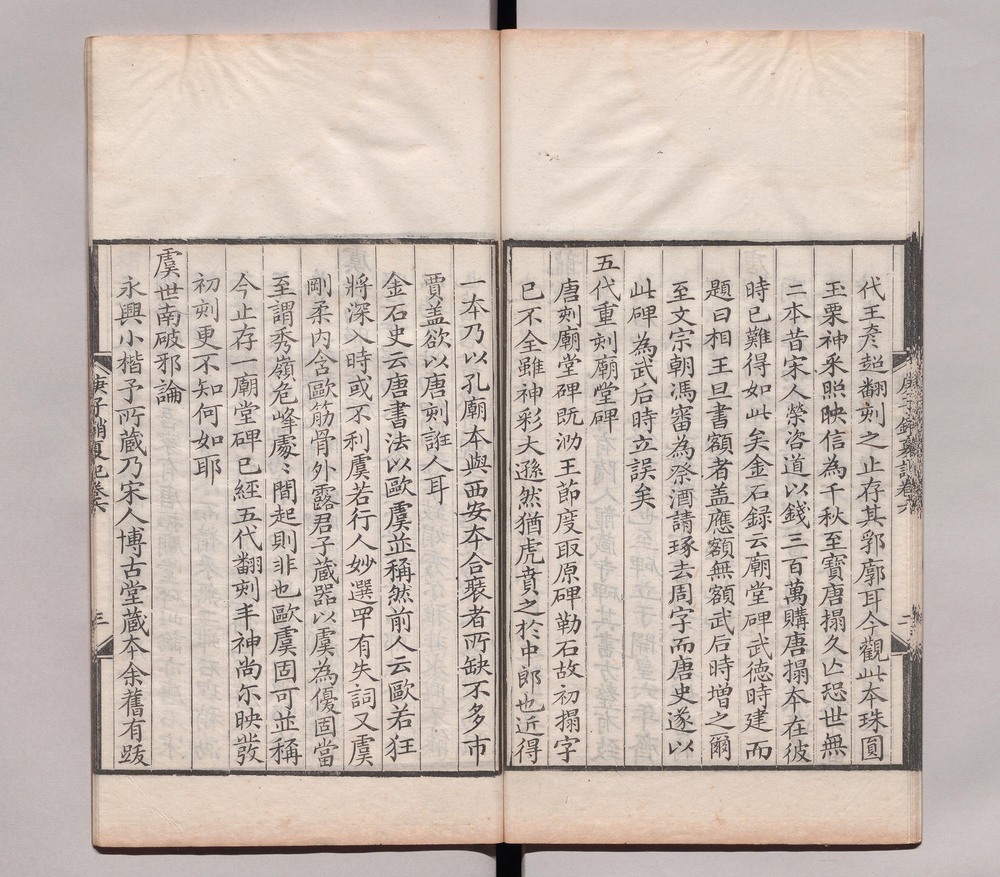 代王彥超翻刻之止存其郛廓耳今觀此本珠圓
玉栗神采照映信為千秋至寶唐搨久亾恐世無
二本昔宋人榮咨道以錢三百萬購唐搨本在彼
時已難得如此矣金石録云廟堂碑武德時建而
題曰相王旦書額者盖應額無額武后時增之爾
至文宗朝馮審為祭酒請琢去周字而唐史遂以
此碑為武后時立誤矣
五代重刻廟堂碑
唐刻廟堂碑既泐王節度取原碑勒石故初搨字
已不全雖神彩大遜然猶虎賁之於中郎也近得
一本乃以孔廟本與西安本合裝者所缺不多市
賈盖欲以唐刻誑人耳
金石史云唐書法以歐虞並稱然前人云歐若狂
將深入時或不利虞若行人妙選罕有失詞又虞
剛柔内含歐筋骨外露君子藏器以虞為優固當
至謂秀嶺危峰處〻間起則非也歐虞固可並稱
今止存一廟堂碑已經五代翻刻丰神尚尓映發
初刻更不知何如耶
虞世南破邪論
永興小楷予所藏乃宋人博古堂藏本余舊有跋
庚子銷夏記卷六
三